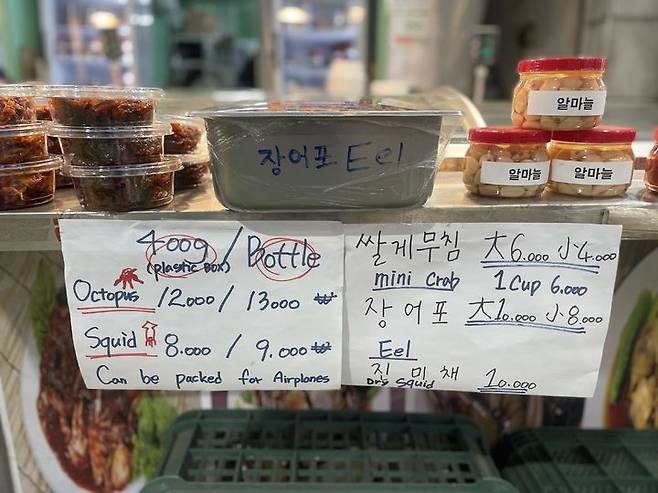 장어포 Eel
알마늘
알마늘
알마늘
400g / Bottle
(plastic box)
Octopus 12000 / 13000 ₩
Squid 8.000 / 9.000 ₩
Can be packed for Airplanes
쌀게무침 大6.000 小4.000
mini crab 1 cup 6.000
장어포 大10.000 小8.000
Eel
진미채 10.000
Dr's squid